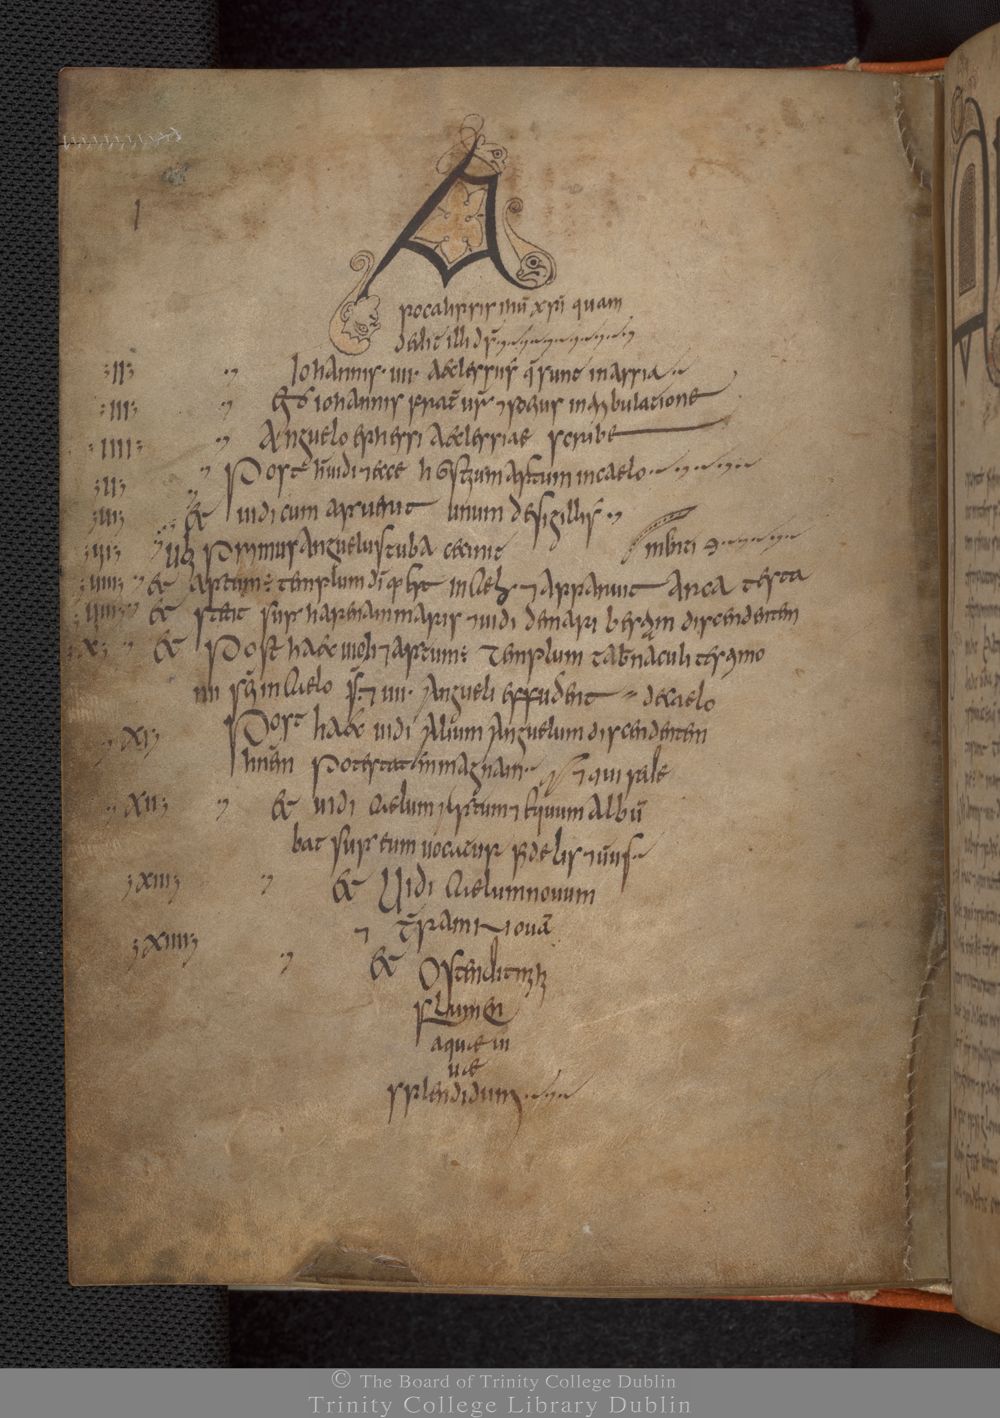 I
A
pocalipsis ihū xp̄i quam
dedit illi d̄s
·II· Iohannis · uii · aeclessiis q̄ sunt in assia
·III· Ego iohannis frat̄ ur̄ ⁊ socius in tribulatione
·IIII· Anguelo ephessi aeclessiae scribe
Post h̄ uidi ⁊ ecce hostium apertum in caelo
et uidi cum aperuit unum de sigillis
Primus anguelus tuba cecinit
et apertum templum d̄i in caelo ⁊ apparuit arca testa
et stetit supr harenam maris ⁊ uidi de mari bestiam discendentem
·X· et Post haec uidi ⁊ apertum templum tab̄naculi testimo
nii in caelo ⁊ uii · angueli effuderit de caelo
·XI· Post haec uidi alium anguelum discendentem
potestatem magnam
·XII· et uidi caelum apertum ⁊ equum albū
bat supr eum uocatur fidelis ⁊ uerus
·XIII· et uidi caelum nouum
⁊ t̄ram nouā
·XIIII· et ostendit mihi
flumen
aquae ui
uae
splendidum
© The Board of Trinity College Dublin
Trinity College Library Dublin